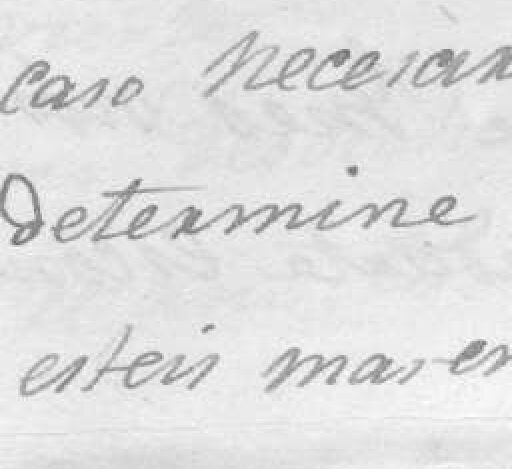 caso necesar
determine
esteis mas en